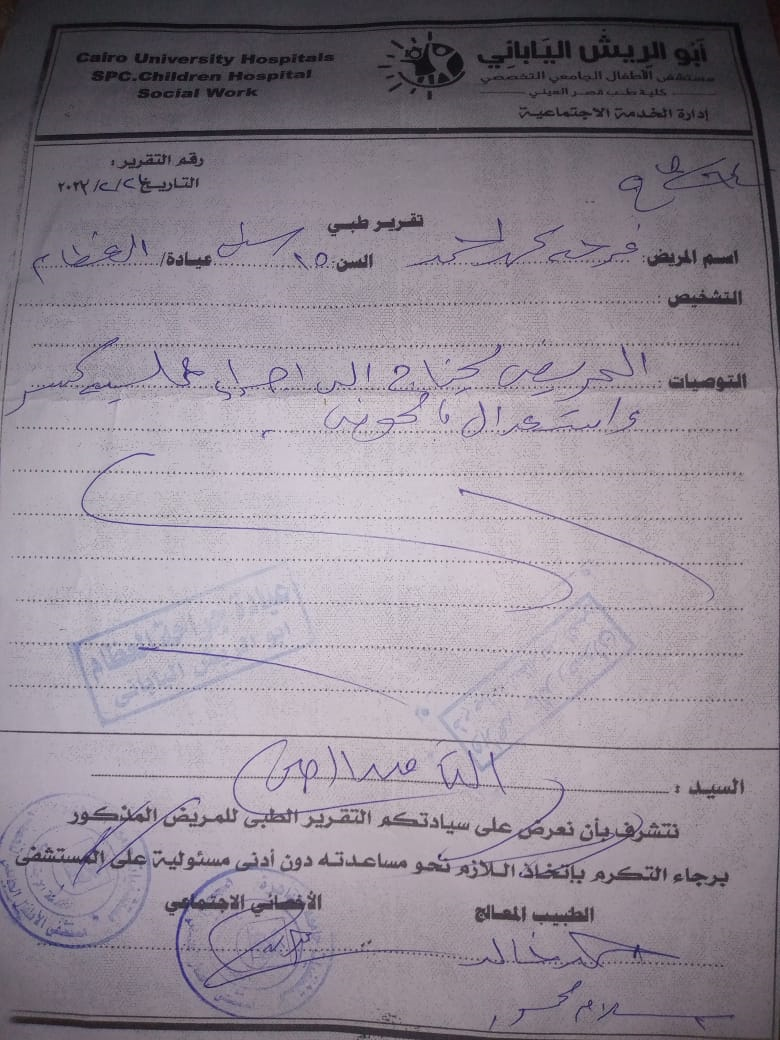 Cairo University Hospitals
SPC.Children Hospital
Social Work
أبو الريش الياباني
مستشفى الأطفال الجامعي التخصصي
كلية طب قصر العيني
إدارة الخدمة الاجتماعية
رقم التقرير :
التاريخ
تقرير طبي
اسم المريض: محمد احمد السن: ١٥ عيادة/ العظام
التشخيص :
التوصيات : المريض يحتاج الى اجراء عملية كسر
واستعدال بالحوض
عيادة جراحة العظام
ابو الريش الياباني
السيد :
نتشرف بأن نعرض على سيادتكم التقرير الطبى للمريض المذكور
برجاء التكرم بإتخاذ اللازم نحو مساعدته دون أدنى مسئولية على المستشفى
الطبيب المعالج الأخصائي الاجتماعي
خالد